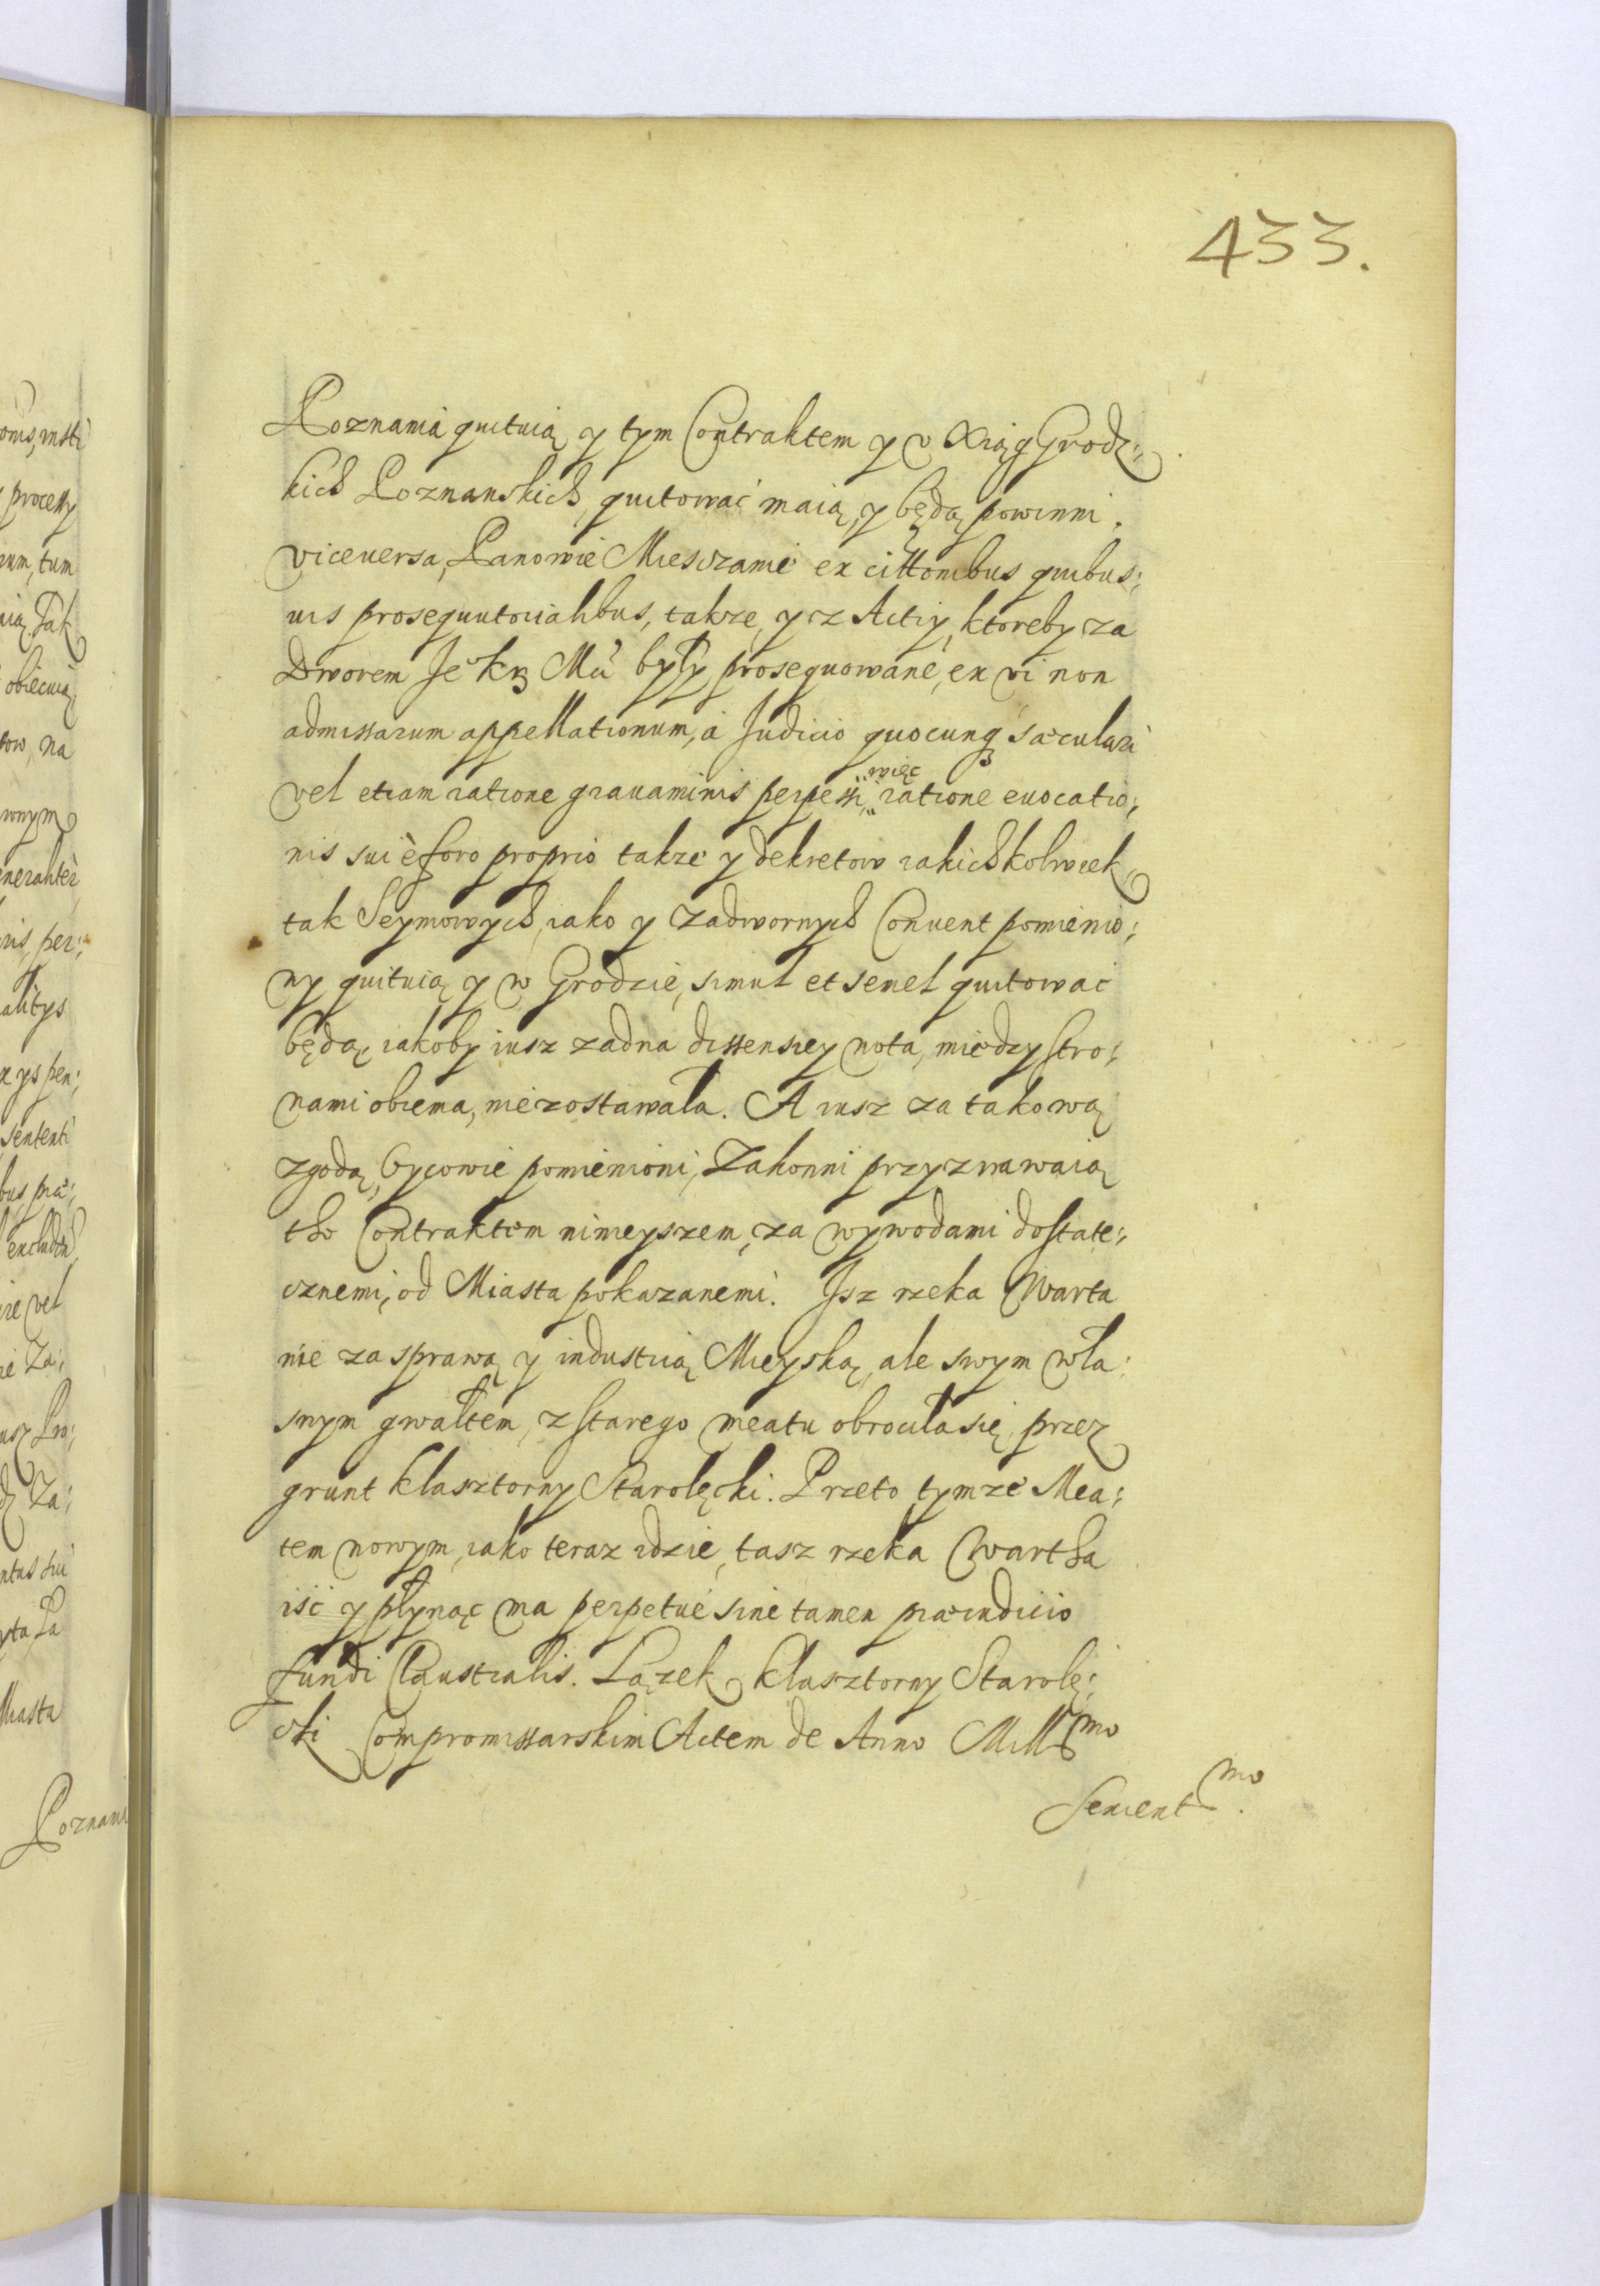 433.
Poznania quituią y tym Contraktem y v Xiąg Grodz:
kich Poznanskich, quitować maią, y będą powinni.
viceversa, Panowie Miesczanie ex cittonibus quibus:
uis prosequutorialibus, takze, y z Actiy, ktoreby za
Dworem Je° Kr Mci były prosequowane, ex vi non
admissarum appellationum, á Judicio quocunq sæculari
vel etiam ratione grauaminis perpessi, więc ratione euocatio:
nis sui è foro proprio takze y dekretow iakichkolwiek,
tak Seymowych, iako y Zadwornych Conuent pomienio:
ny quituią y w Grodzie, simul et semel quitować
będą, iakoby iusz zadna dissensiey nota, miedzy stro:
nami obiema, niezostawała. A iusz za takową
zgodą, Oycowie pomienioni, Zakonni przyznawaią
tho Contraktem ninieyszem, za wywodami dostate:
cznemi, od Miasta pokazanemi. Jsz rzeka Warta
nie za sprawą y industrią Mieyską, ale swym wła:
snym gwałtem, z starego meatu obrociła się, przez
grunt klasztorny Starolęcki. Przeto tymze Mea:
tem nowym, iako teraz idzie, tasz rzeka Wartha
iść y płynąc ma perpetue sine tamen præiudicio
fundi Claustralis. Lązek klasztorny Starolę:
cki Compromissarskim Actem de Anno Mill mo
Sexcent mo.